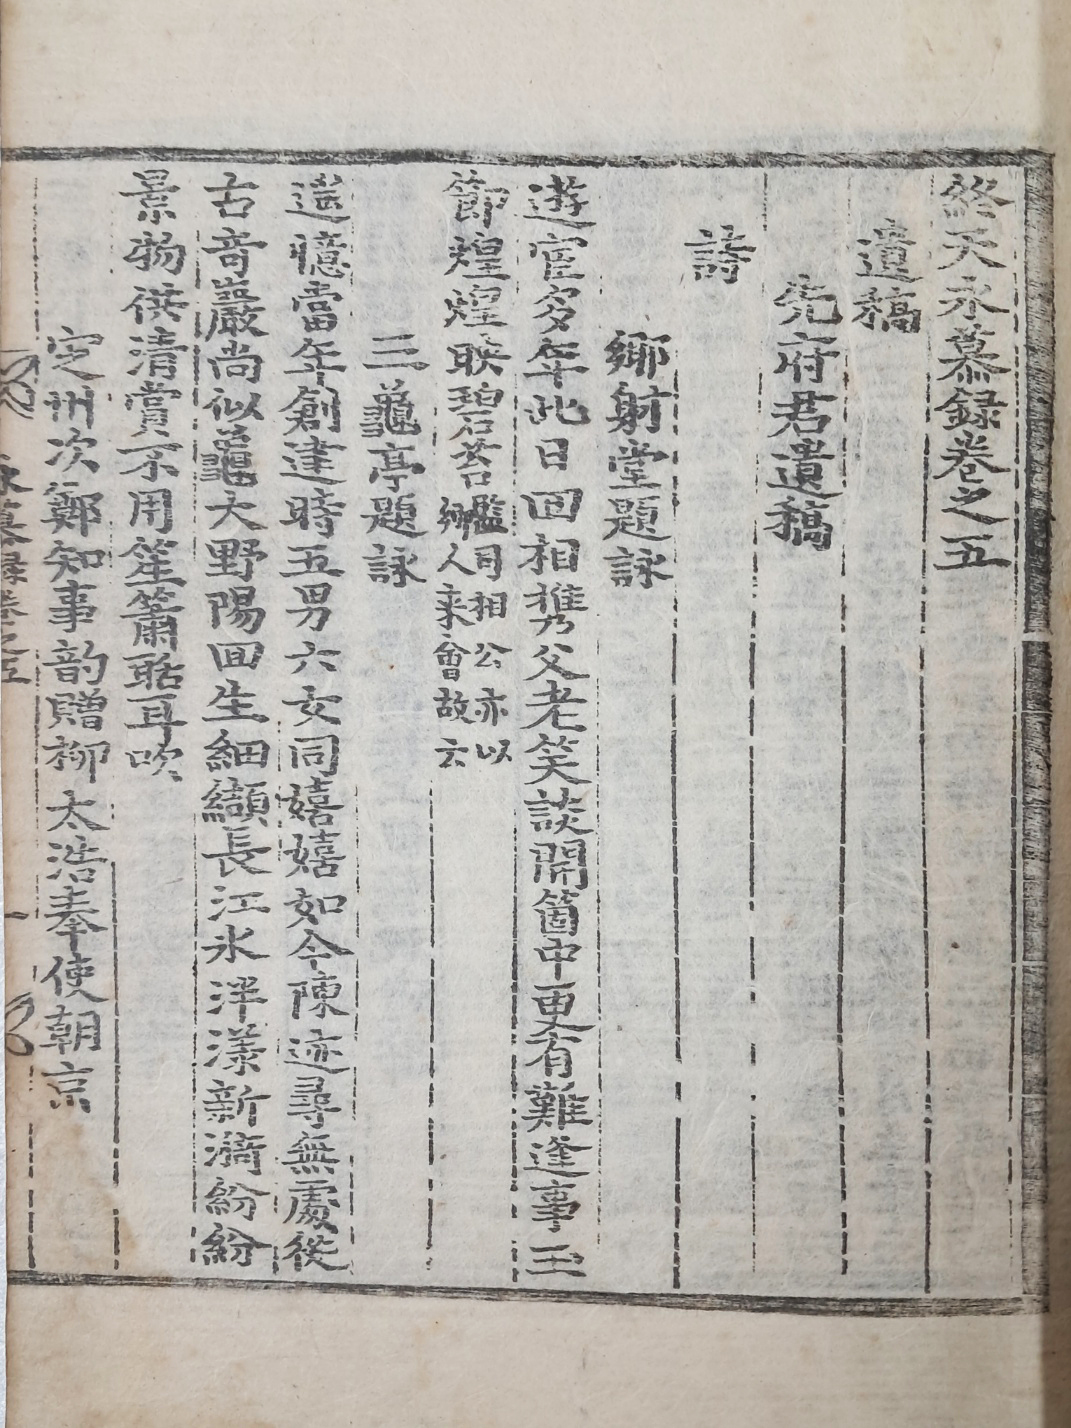 終天永慕録卷之五
遺稿
先府君遺稿
詩
鄉射堂題詠
遊宦多年此日回相携父老笑談開箇中更有難逢事玉
節煌煌映碧苔監司相公亦以鄉人来會故云
三龜亭題詠
遥憶當年創建時五男六女同嬉嬉如今陳迹尋無處從
古奇巖尚似龜大野陽回生細纈長江水泮漾新漪紛紛
景物供清賞不用笙簫聒耳吹
定州次鄭知事韵贈柳太浩奉使朝京
永慕録卷之五
一